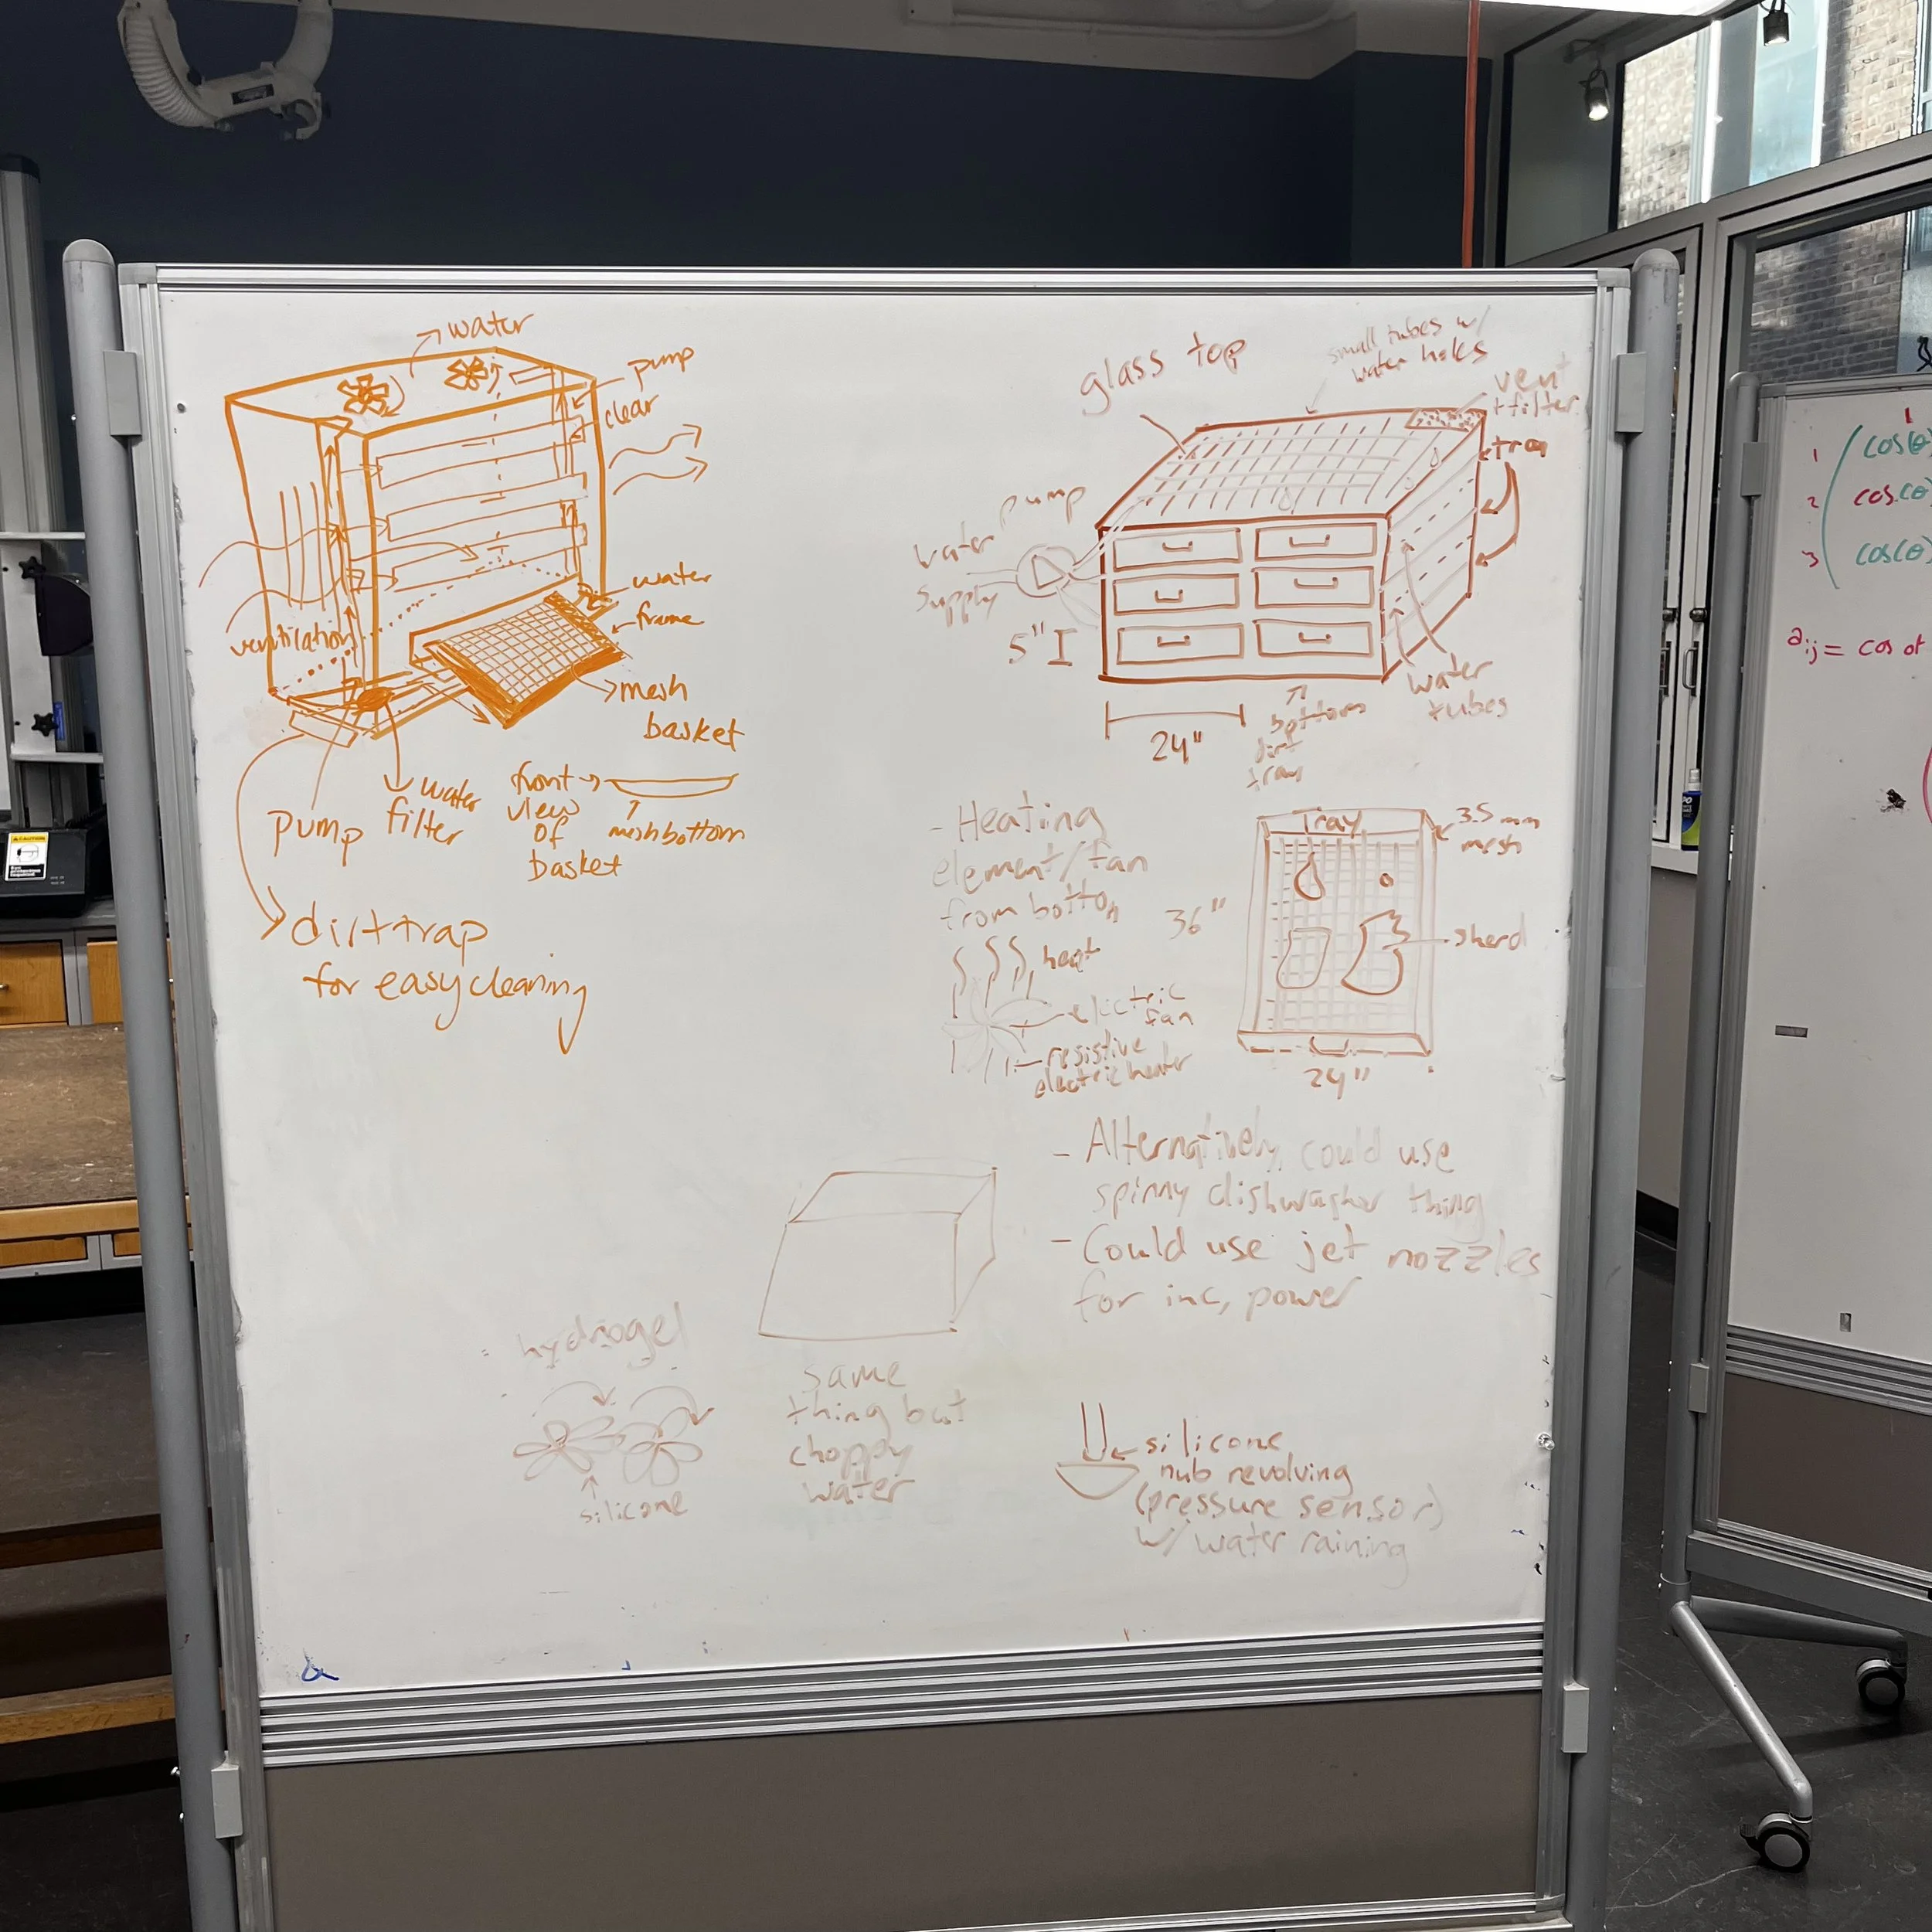 water
pump
clear
water
frame
ventilation
mesh
basket
pump
water
filter
front
view
of
basket
mesh bottom
dirt trap
for easy cleaning
glass top
small tubes w/
water holes
vent
+ filter
tray
pump
water
supply
5"
24"
bottom
dirt
tray
water
tubes
- Heating
element/fan
from bottom
heat
electric
fan
resistive
electric heater
Tray
3.5 mm
mesh
36"
sherd
24"
- Alternatively, could use
spinny dishwasher thing
- Could use jet nozzles
for inc. power
hydrogel
silicone
same
thing but
choppy
water
silicone
nub revolving
(pressure sensor)
w/ water raining
1
1 cos(θ
2 cos(θ
3 cos(θ
aij = cos of
CAUTION